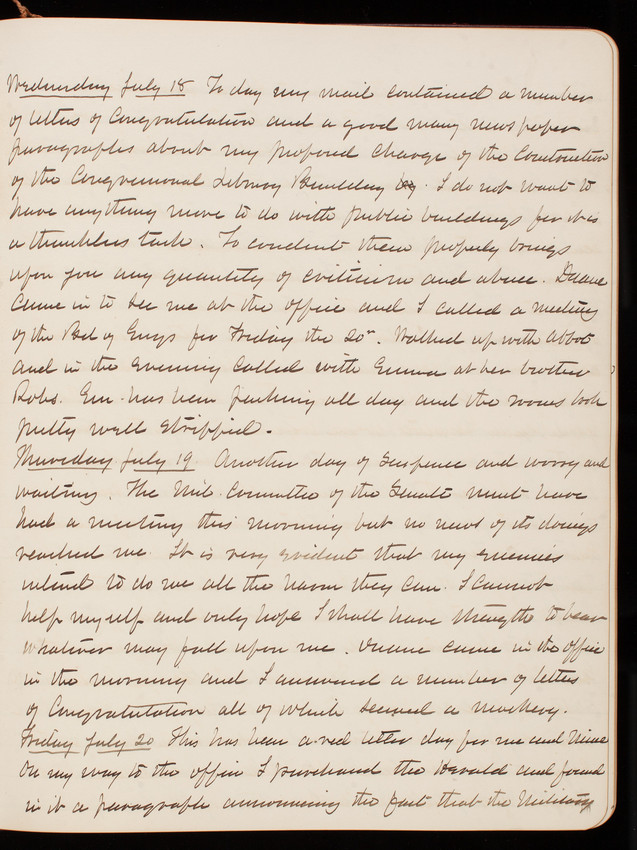 Wednesday July 18 To day my mail contained a number
of letters of Congratulation and a good many newspaper
paragraphs about my proposed charge of the Construction
of the Congressional Library Building. I do not want to
have anything more to do with public buildings for it is
a thankless task. To conduct them properly brings
upon you any quantity of criticism and abuse. Duane
came in to see me at the office and I called a meeting
of the Bd of Engrs for Friday the 20". Walked up with Abbot
and in the evening called with Emma at her brother
Robs. Em. has been packing all day and the rooms look
pretty well stripped.
Thursday July 19 Another day of suspense and worry and
waiting. The Mil. Committee of the Senate must have
had a meeting this morning but no news of its doings
reached me. It is very evident that my enemies
intend to do me all the harm they can. I cannot
help myself and only hope I shall have strength to bear
whatever may fall upon me. Duane came in the office
in the morning and I answered a number of letters
of Congratulation all of which seemed a mockery.
Friday July 20 This has been a red letter day for me and mine
On my way to the office I purchased the Herald and found
in it a paragraph announcing the fact that the Military